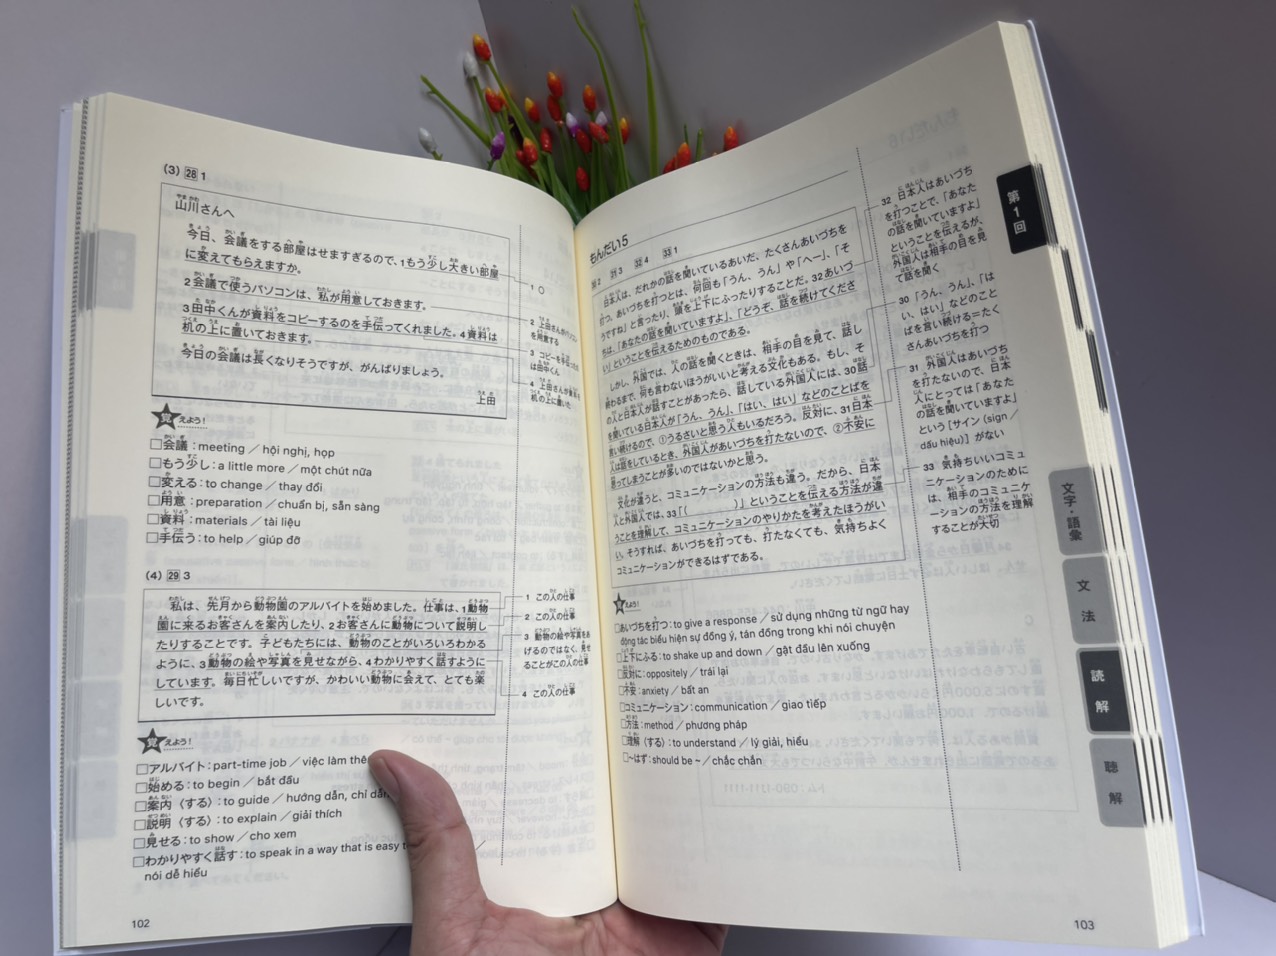 (3) 28 1
山川さんへ
今日、会議をする部屋はせますぎるので、1もう少し大きい部屋
に変えてもらえますか。
2会議で使うパソコンは、私が用意しておきます。
3田中くんが資料をコピーするのを手伝ってくれました。4資料は
机の上に置いておきます。
今日の会議は長くなりそうですが、がんばりましょう。
上田
1 ○
2 上田さんがパソコン
を用意する
3 コピーを手伝ったの
は田中くん
4 上田さんが資料を
机の上に置いた
覚えよう!
□会議：meeting／hội nghị, họp
□もう少し：a little more／một chút nữa
□変える：to change／thay đổi
□用意：preparation／chuẩn bị, sẵn sàng
□資料：materials／tài liệu
□手伝う：to help／giúp đỡ
(4) 29 3
私は、先月から動物園のアルバイトを始めました。仕事は、1動物
園に来るお客さんを案内したり、2お客さんに動物について説明し
たりすることです。子どもたちには、動物のことがいろいろわかる
ように、3動物の絵や写真を見せながら、4わかりやすく話すように
しています。毎日忙しいですが、かわいい動物に会えて、とても楽
しいです。
1 この人の仕事
2 この人の仕事
3 動物の絵や写真をあ
げるのではなく、見せ
ることがこの人の仕事
4 この人の仕事
覚えよう!
□アルバイト：part-time job／việc làm thê
□始める：to begin／bắt đầu
□案内（する）：to guide／hướng dẫn, chỉ dẫn
□説明（する）：to explain／giải thích
□見せる：to show／cho xem
□わかりやすく話す：to speak in a way that is easy
nói dễ hiểu
102
もんだい5
30 2 31 3 32 4 33 1
日本人は、だれかの話を聞いているあいだ、たくさんあいづちを
打つ。あいづちを打つとは、何回も「うん、うん」や「へー」、「そ
うですね」と言ったり、頭を上下にふったりすることだ。32あいづ
ちは、「あなたの話を聞いていますよ」、「どうぞ、話を続けてくださ
い」ということを伝えるためのものである。
しかし、外国では、人の話を聞くときは、相手の目を見て、話し
終わるまで、何も言わないほうがいいと考える文化もある。もし、そ
の人と日本人が話すことがあったら、話している外国人には、30話
を聞いている日本人が「うん、うん」、「はい、はい」などのことばを
言い続けるので、①うるさいと思う人もいるだろう。反対に、31日本
人は話をしているとき、外国人があいづちを打たないので、②不安に
思ってしまうことが多いのではないかと思う。
文化が違うと、コミュニケーションの方法も違う。だから、日本
人と外国人では、33「( )」ということを伝える方法が違
うことを理解して、コミュニケーションのやりかたを考えたほうがい
い。そうすれば、あいづちを打っても、打たなくても、気持ちよく
コミュニケーションができるはずである。
32 日本人はあいづち
を打つことで、「あなた
の話を聞いていますよ」
ということを伝えるが、
外国人は相手の目を見
て話を聞く
30 「うん、うん」、「は
い、はい」などのこと
ばを言い続ける=たく
さんあいづちを打つ
31 外国人はあいづち
を打たないので、日本
人にとっては「あなた
の話を聞いていますよ」
という[サイン(sign／
dấu hiệu)]がない
33 気持ちいいコミュ
ニケーションのために
は、相手のコミュニケ
ーションの方法を理解
することが大切
えよう!
□あいづちを打つ：to give a response／sử dụng những từ ngữ hay
động tác biểu hiện sự đồng ý, tán đồng trong khi nói chuyện
□上下にふる：to shake up and down／gật đầu lên xuống
□反対に：oppositely／trái lại
□不安：anxiety／bất an
□コミュニケーション：communication／giao tiếp
□方法：method／phương pháp
□理解（する）：to understand／lý giải, hiểu
□〜はず：should be ~／chắc chắn
第1回
文字・語彙
文法
読解
聴解
103